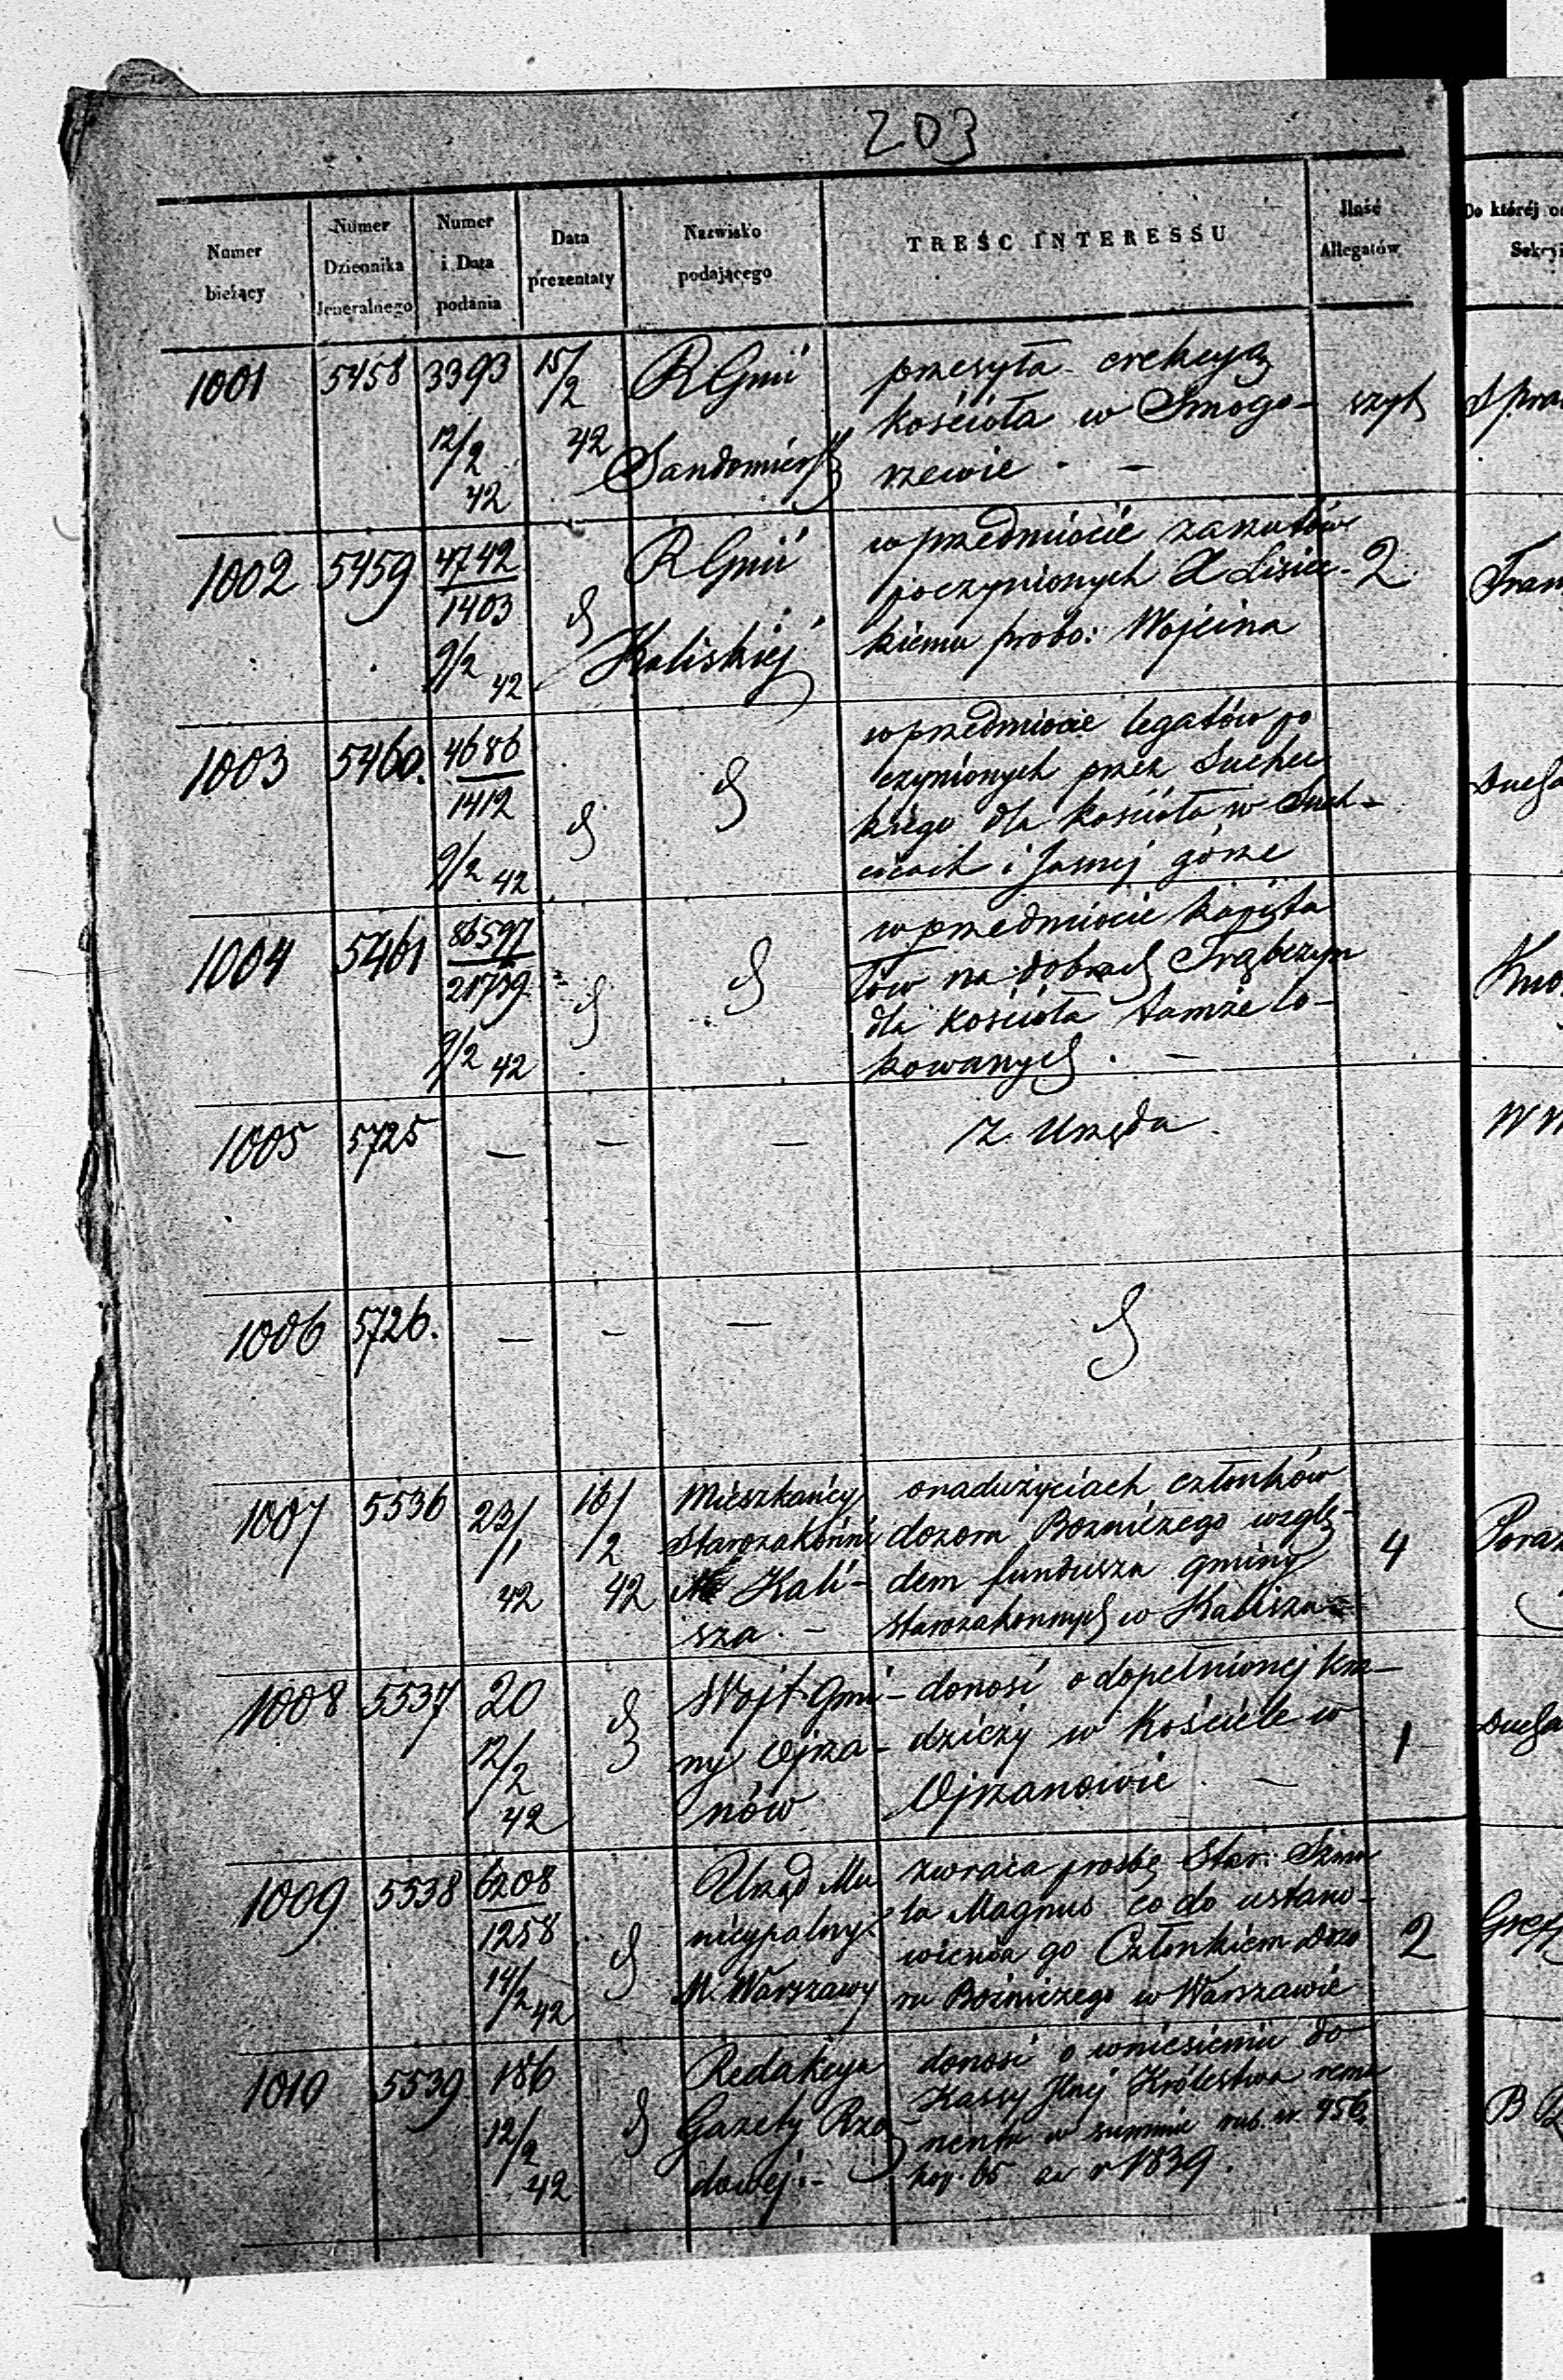 203
Numer
bieżący
Numer
Dziennika
Jeneralnego
Numer
i Data
podania
Data
prezentaty
Nazwisko
podającego
TREŚC INTERESSU
Ilość
Allegatów
Do której
1001
5458
3393
12/2
42
15/2
42
RGnii
Sandomierskij
przesyła erekcyą
kościoła w Smogo-
rzewie . –
szyt
1002
5459
4742
1403
9/2 42
RGnii
Kaliskiej
w przedmiocie zarzutów
poczynionych X Lisiec-
kiemu probo: Wojcina
2
1003
5460.
4686
1412
9/2 42
w przedmiocie legatów po
czynionych przez Suchec
kiego dla kościoła w Such-
cicach i Jasnej górze
1004
5461
86597
21739
9/2 42
w przedmiocie kapita
łów na dobrach Trąbczyn
dla kościoła tamże lo-
kowanych . –
1005
5725
–
–
–
Z Urzędu
1006
5726.
–
–
–
1007
5536
23/1
42
16/2
42
Mieszkańcy
Starozakonni
Kali-
sza . –
o nadużyciach członków
dozoru Bozniczego wzglę-
dem funduszu gminy
starozakonnych w Kaliszu
4
1008
5537
20
12/2
42
Wojt Gmi-
ny Ojrza-
nów
donosi o dopełnionej kra-
dzieży w Kościele w
Ojrzanowie . –
1
1009
5538
6208
1258
14/2 42
Urząd Mu
nicypalny
M. Warszawy
zwraca prosbę Star: Szmu
la Magnus co do ustano-
wienia go Członkiem Dozo
ru Bożniczego w Warszawie
2
1010
5539
186
12/2
42
Redakcya
Gazety Rzą
dowej . –
donosi o wniesieniu do
Kassy Jlnej Królestwa rema
nentu w summie rub. sr. 956
kop. 65 za r 1839.